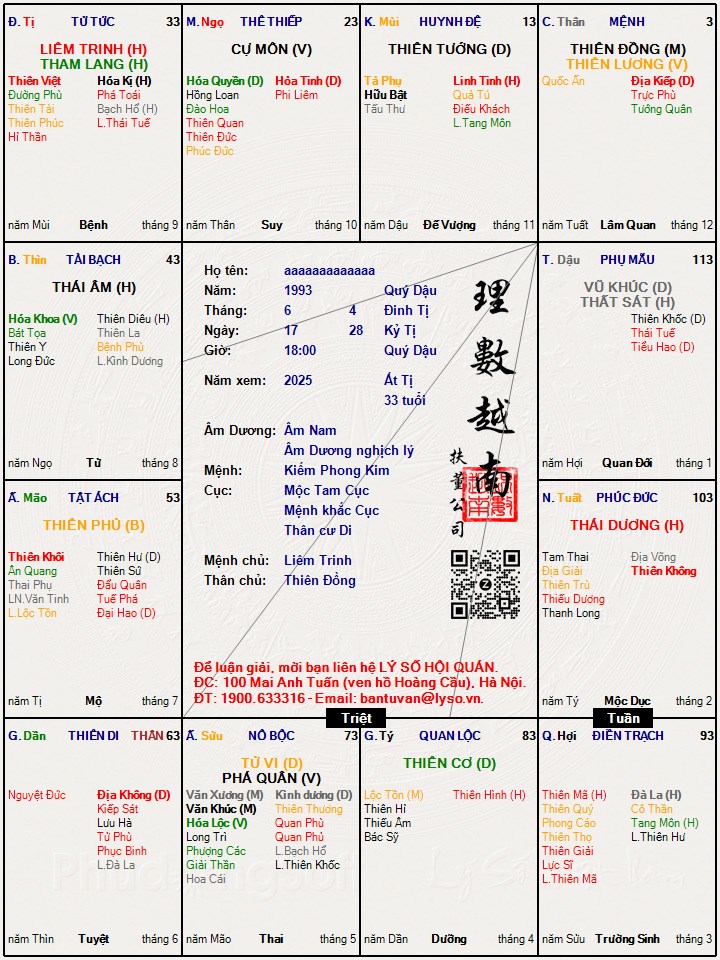 Đ. Tị TỬ TỨC 33
LIÊM TRINH (H)
THAM LANG (H)
Thiên Việt Hóa Kị (H)
Đường Phù Phá Toái
Thiên Tài Bạch Hổ (H)
Thiên Phúc L.Thái Tuế
Hỉ Thần
năm Mùi Bệnh tháng 9
M. Ngọ THÊ THIẾP 23
CỰ MÔN (V)
Hóa Quyền (D) Hỏa Tinh (D)
Hồng Loan Phi Liêm
Đào Hoa
Thiên Quan
Thiên Đức
Phúc Đức
năm Thân Suy tháng 10
K. Mùi HUYNH ĐỆ 13
THIÊN TƯỚNG (D)
Tả Phụ Linh Tinh (H)
Hữu Bật Quả Tú
Tấu Thư Điếu Khách
L.Tang Môn
năm Dậu Đế Vượng tháng 11
C. Thân MỆNH 3
THIÊN ĐỒNG (M)
THIÊN LƯƠNG (V)
Quốc Ấn Địa Kiếp (D)
Trực Phù
Tướng Quân
năm Tuất Lâm Quan tháng 12
B. Thìn TÀI BẠCH 43
THÁI ÂM (H)
Hóa Khoa (V) Thiên Diêu (H)
Bát Tọa Thiên La
Thiên Y Bệnh Phù
Long Đức L.Kình Dương
năm Ngọ Tử tháng 8
Họ tên: aaaaaaaaaaaaa
Năm: 1993 Quý Dậu
Tháng: 6 4 Đinh Tị
Ngày: 17 28 Kỷ Tị
Giờ: 18:00 Quý Dậu
Năm xem: 2025 Ất Tị
33 tuổi
Âm Dương: Âm Nam
Âm Dương nghịch lý
Mệnh: Kiếm Phong Kim
Cục: Mộc Tam Cục
Mệnh khắc Cục
Thân cư Di
Mệnh chủ: Liêm Trinh
Thân chủ: Thiên Đồng
理數越南
扶董公司
Để luận giải, mời bạn liên hệ LÝ SỐ HỘI QUÁN.
ĐC: 100 Mai Anh Tuấn (ven hồ Hoàng Cầu), Hà Nội.
ĐT: 1900.633316 - Email: bantuvan@lyso.vn.
T. Dậu PHỤ MẪU 113
VŨ KHÚC (D)
THẤT SÁT (H)
Thiên Khốc (D)
Thái Tuế
Tiểu Hao (D)
năm Hợi Quan Đới tháng 1
Ấ. Mão TẬT ÁCH 53
THIÊN PHỦ (B)
Thiên Khôi Thiên Hư (D)
Ân Quang Thiên Sứ
Thai Phụ Đẩu Quân
LN.Văn Tinh Tuế Phá
L.Lộc Tồn Đại Hao (D)
năm Tị Mộ tháng 7
N. Tuất PHÚC ĐỨC 103
THÁI DƯƠNG (H)
Tam Thai Địa Võng
Địa Giải Thiên Không
Thiên Trù
Thiếu Dương
Thanh Long
năm Tý Mộc Dục tháng 2
Triệt
Tuần
G. Dần THIÊN DI THÂN 63
Nguyệt Đức Địa Không (D)
Kiếp Sát
Lưu Hà
Tử Phù
Phục Binh
L.Đà La
năm Thìn Tuyệt tháng 6
Ấ. Sửu NÔ BỘC 73
TỬ VI (D)
PHÁ QUÂN (V)
Văn Xương (M) Kình dương (D)
Văn Khúc (M) Thiên Thương
Hóa Lộc (V) Quan Phù
Long Trì Quan Phủ
Phượng Các L.Bạch Hổ
Giải Thần L.Thiên Khốc
Hoa Cái
năm Mão Thai tháng 5
G. Tý QUAN LỘC 83
THIÊN CƠ (D)
Lộc Tồn (M) Thiên Hình (H)
Thiên Hỉ
Thiếu Âm
Bác Sỹ
năm Dần Dưỡng tháng 4
Q. Hợi ĐIỀN TRẠCH 93
Thiên Mã (H) Đà La (H)
Thiên Quý Cô Thần
Phong Cáo Tang Môn (H)
Thiên Thọ L.Thiên Hư
Thiên Giải
Lực Sĩ
L.Thiên Mã
năm Sửu Trường Sinh tháng 3